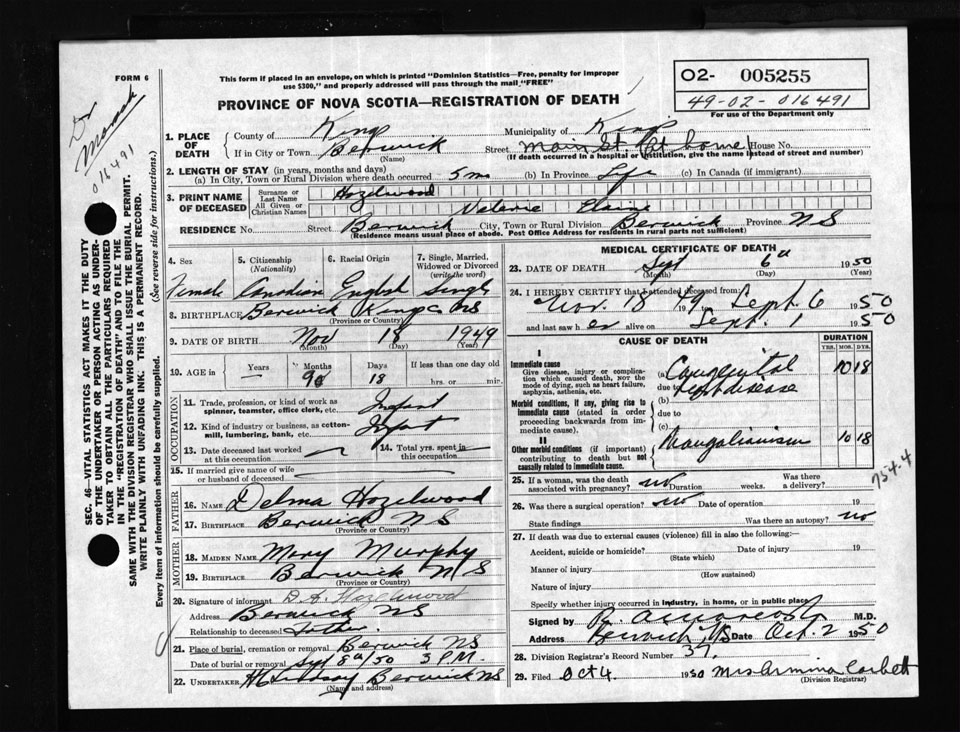 FORM 6
This form if placed in an envelope, on which is printed "Dominion Statistics—Free, penalty for improper
use $300," and properly addressed will pass through the mail "FREE"
PROVINCE OF NOVA SCOTIA—REGISTRATION OF DEATH
O2- 005255
49-02-016491
For use of the Department only
Dr
016491
SEC. 46—VITAL STATISTICS ACT MAKES IT THE DUTY
OF THE UNDERTAKER OR PERSON ACTING AS UNDER-
TAKER TO OBTAIN ALL THE PARTICULARS REQUIRED
IN THE "REGISTRATION OF DEATH" AND TO FILE THE
SAME WITH THE DIVISION REGISTRAR WHO SHALL ISSUE THE BURIAL PERMIT.
WRITE PLAINLY WITH UNFADING INK. THIS IS A PERMANENT RECORD.
(See reverse side for instructions.)
Every item of information should be carefully supplied.
1. PLACE OF DEATH
County of Kings Municipality of Kings
If in City or Town Berwick Street Main St. (at home) House No.
(Name) (If death occurred in a hospital or institution, give the name instead of street and number)
2. LENGTH OF STAY (in years, months and days)
(a) In City, Town or Rural Division where death occurred 5 ms (b) In Province Life (c) In Canada (if immigrant)
3. PRINT NAME OF DECEASED
Surname or Last Name Hazelwood
All Given or Christian Names Valerie Elaine
RESIDENCE No. Street Berwick City, Town or Rural Division Berwick Province NS
(Residence means usual place of abode. Post Office Address for residents in rural parts not sufficient)
4. Sex 5. Citizenship (Nationality) 6. Racial Origin 7. Single, Married, Widowed or Divorced (write the word)
Female Canadian English Single
8. BIRTHPLACE Berwick Kings Co NS
(Province or Country)
9. DATE OF BIRTH Nov 18 1949
(Month) (Day) (Year)
10. AGE in Years Months Days If less than one day old
— 9 18 hrs. or min.
OCCUPATION
11. Trade, profession, or kind of work as spinner, teamster, office clerk, etc. Infant
12. Kind of industry or business, as cotton-mill, lumbering, bank, etc. Infant
13. Date deceased last worked at this occupation 14. Total yrs. spent in this occupation
15. If married give name of wife or husband of deceased
FATHER
16. Name Delma Hazelwood
17. Birthplace Berwick NS
(Province or Country)
MOTHER
18. MAIDEN NAME Mary Murphy
19. BIRTHPLACE Berwick NS
(Province or Country)
20. Signature of informant D.A. Hazelwood
Address Berwick NS
Relationship to deceased Father
21. Place of burial, cremation or removal Berwick NS
Date of burial or removal Sept 8th/50 3 P.M.
22. UNDERTAKER Lindsay Berwick NS
(Name and address)
MEDICAL CERTIFICATE OF DEATH
23. DATE OF DEATH Sept 6th 1950
(Month) (Day) (Year)
24. I HEREBY CERTIFY that I attended deceased from:
Nov. 18 1949 to Sept. 6 1950
and last saw her alive on Sept. 1 1950
CAUSE OF DEATH DURATION
YRS. MOS. DYS.
I
Immediate cause
Give disease, injury or complication which caused death, not the mode of dying, such as heart failure, asphyxia, asthenia, etc.
(a) Congenital 10 18
due to
Morbid conditions, if any, giving rise to immediate cause (stated in order proceeding backwards from immediate cause).
(b)
due to
(c)
II
Other morbid conditions (if important) contributing to death but not causally related to immediate cause.
Mongolianism 10 18
754-4
25. If a woman, was the death associated with pregnancy? no Duration weeks. Was there a delivery?
26. Was there a surgical operation? no Date of operation 19
State findings Was there an autopsy? no
27. If death was due to external causes (violence) fill in also the following:—
Accident, suicide or homicide? Date of injury 19
(State which)
Manner of injury
(How sustained)
Nature of injury
Specify whether injury occurred in industry, in home, or in public place
Signed by M.D.
Address Berwick, NS Date Oct. 2 1950
28. Division Registrar's Record Number 37.
29. Filed Oct 4. 1950 Mrs Armina Corbett
(Division Registrar)